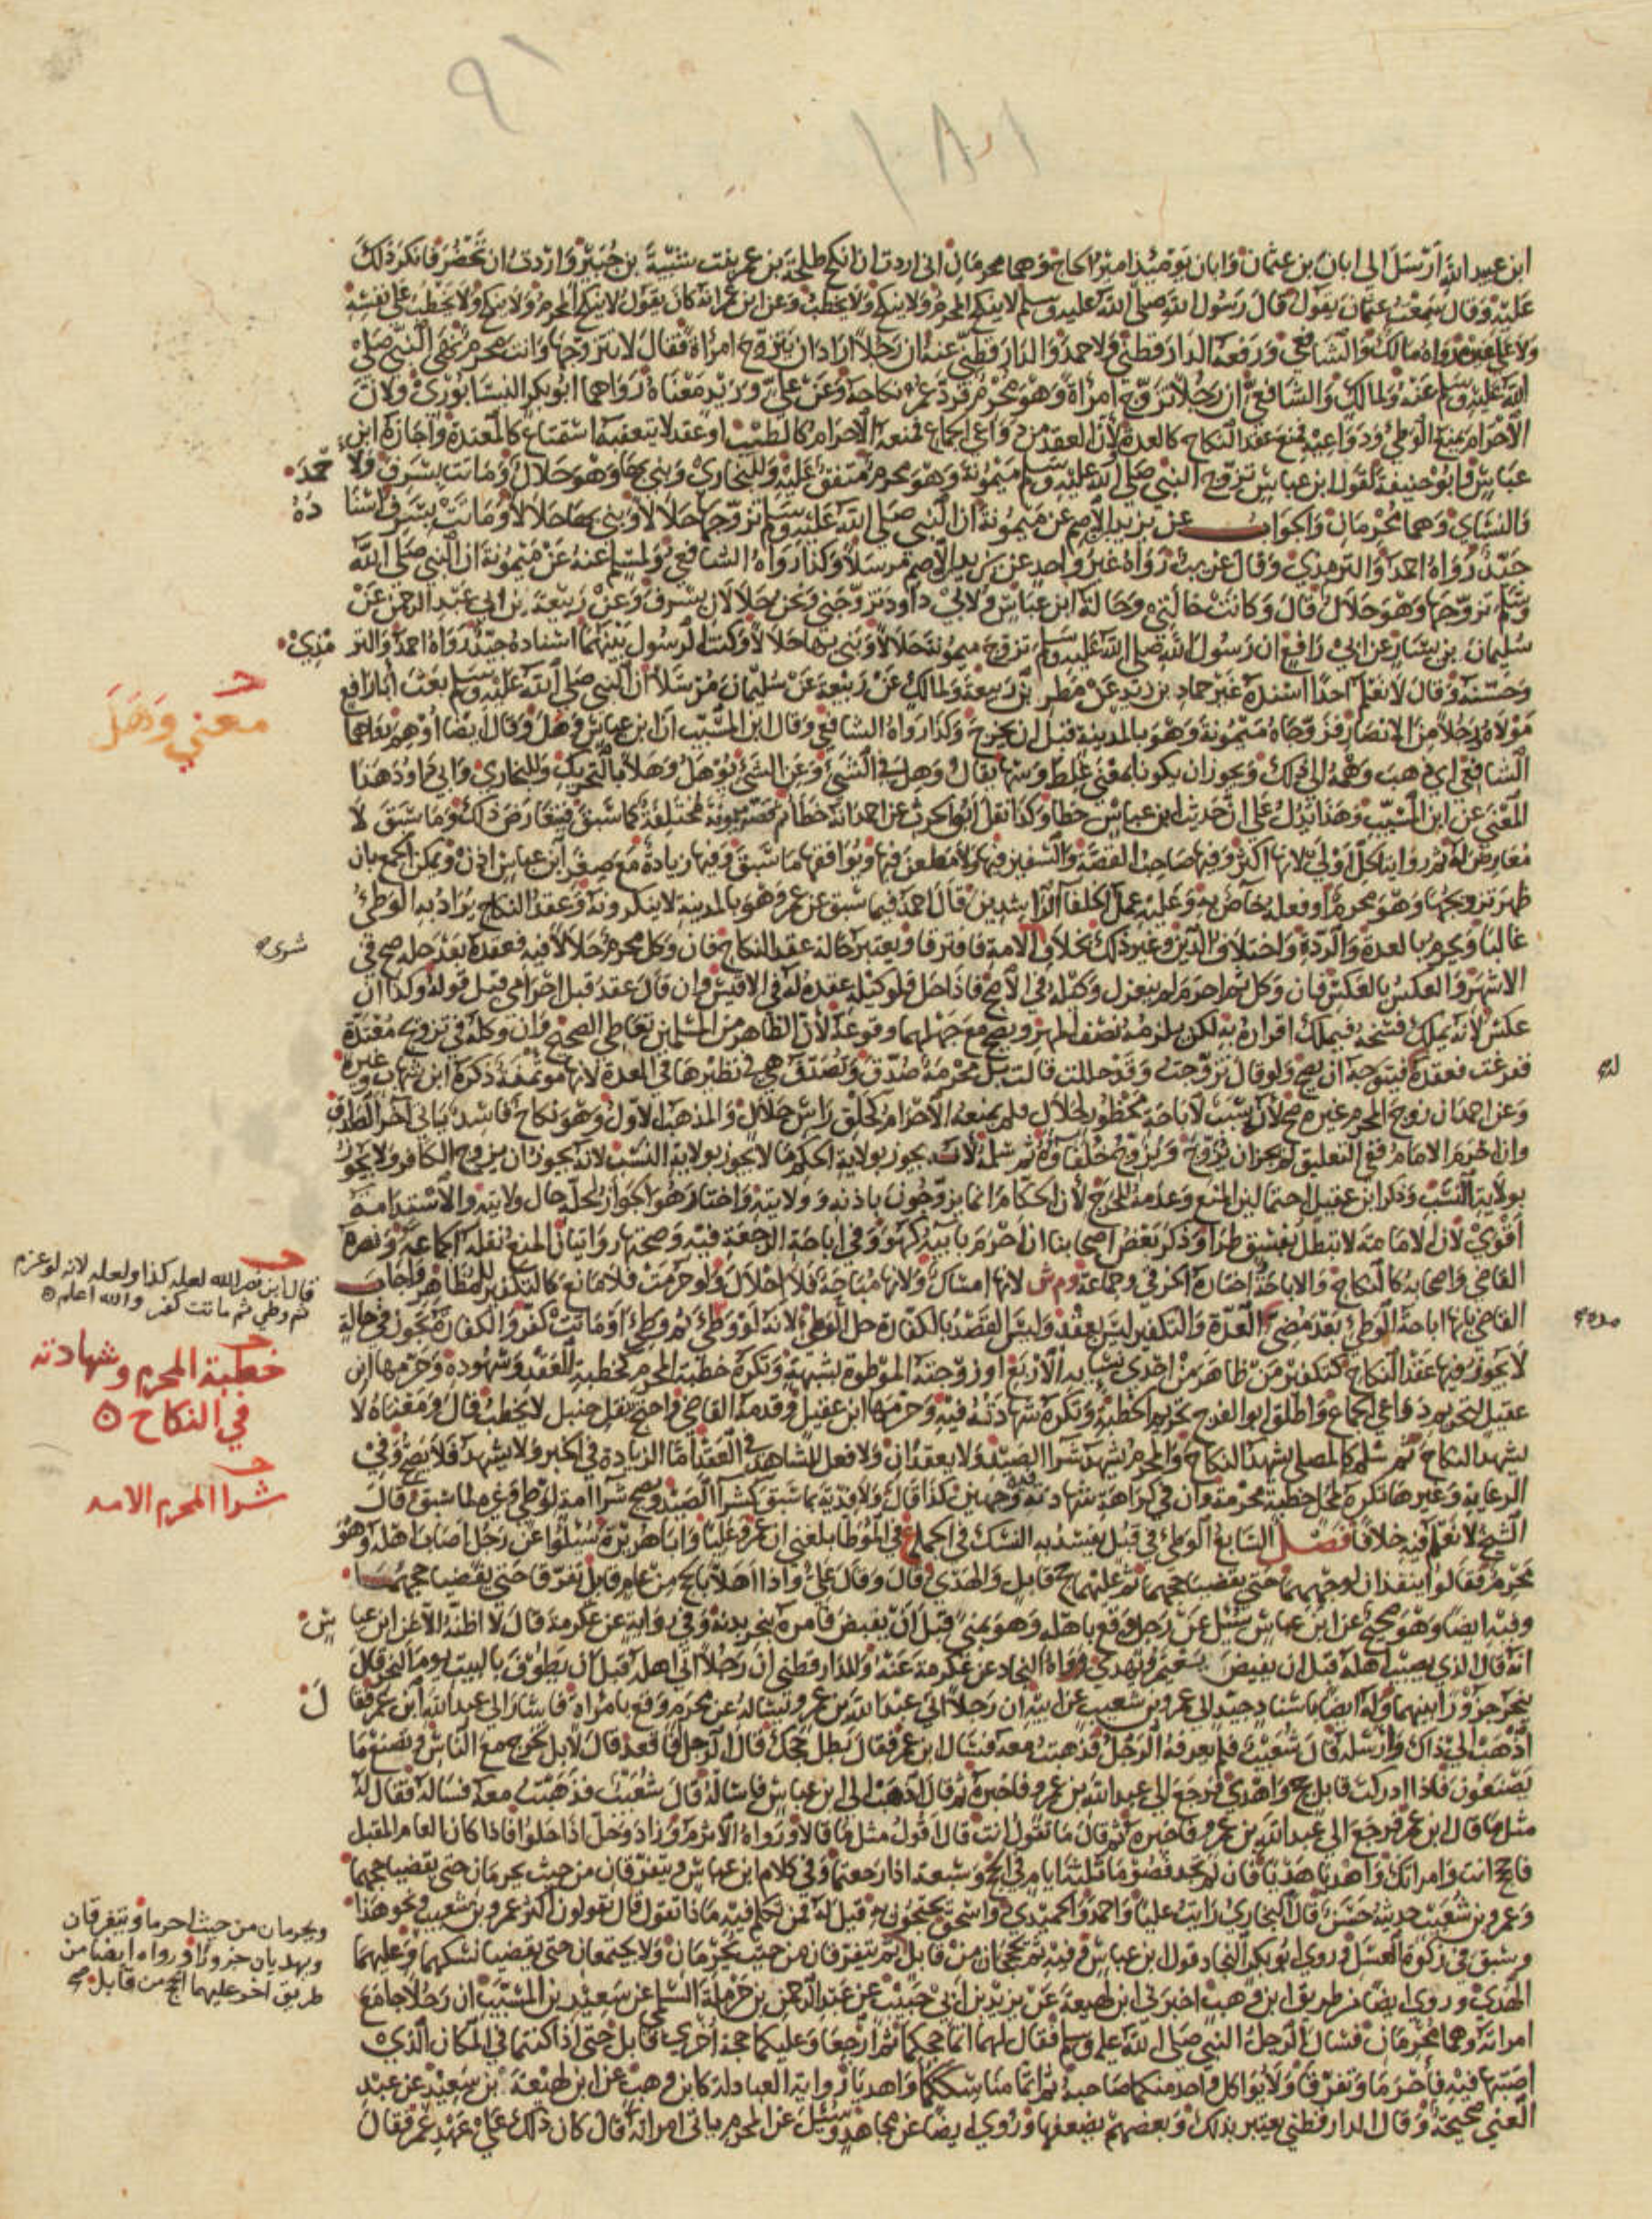 ٩١
١٨١
ابن عبيد الله أرسل إلى ابان بن عثمان وابان يومئذ امير الحاج وهما محرمان اني اردت ان انكح طلحة بن عمر بنت شيبة بن جبير واردت ان تحضر فانكر ذلك
عليه وقال سمعت عثمان يقول قال رسول الله صلى الله عليه وسلم لا ينكح المحرم ولا ينكح ولا يخطب وعن ابن عمر انه كان يقول لا ينكح المحرم ولا ينكح ولا يخطب على نفسه
ولا على غيره رواه مالك والشافعي ورفعه الدارقطني ولاحمد والدارقطني عنه ان رجلا اراد ان يتزوج امرأة فقال لا تتزوجها وانت محرم نهى النبي صلى
الله عليه وسلم عنه ولمالك والشافعي ان رجلا تزوج امرأة وهو محرم فرد عمر نكاحه وعن علي وزيد معناه رواهما ابو بكر النيسابوري ولان
الاحرام يمنع الوطئ ودواعيه فمنع عقد النكاح كالعدة لان العقد من دواعي الجماع فمنعه الاحرام كالطيب او عقد لا يتعقبه استمتاع كالمعتدة واجازه ابن
عباس وابو حنيفة لقول ابن عباس تزوج النبي صلى الله عليه وسلم ميمونة وهو محرم متفق عليه وللبخاري وبنى بها وهو حلال وماتت بسرف ولا حمد
والنساي وهما محرمان والجواب عن يزيد الاصم عن ميمونة ان النبي صلى الله عليه وسلم تزوجها حلالا وبنى بها حلالا وماتت بسرف اسنا ده
جيد رواه احمد والترمذي وقال غريب رواه غير واحد عن يزيد الاصم مرسلا وكذا رواه الشافعي ولمسلم عنه عن ميمونة ان النبي صلى الله
وسلم تزوجها وهو حلال قال وكانت خالتي وخالة ابن عباس ولابي داود تزوجني ونحن حلالان بسرف وعن ربيعة بن ابي عبد الرحمن عن
سليمان بن يسار عن ابي رافع ان رسول الله صلى الله عليه وسلم تزوج ميمونة حلالا وبنى بها حلالا وكنت الرسول بينهما اسناده جيد رواه احمد والتر مذي
وحسنه وقال لا نعلم احدا اسنده غير حماد بن زيد عن مطر عن ربيعة ولمالك عن ربيعة عن سليمان مرسلا ان النبي صلى الله عليه وسلم بعث ابا رافع
مولاه ورجلا من الانصار فزوجاه ميمونة وهو بالمدينة قبل ان يخرج وكذا رواه الشافعي وقال ابن المسيب ان ابن عباس وهل وقال ايضا اوهم رواهما
معنى وهل
الشافعي اي ذهب وهمه الى ذلك ويجوز ان يكونا بمعنى غلط وسها يقال وهل في الشئ وعن الشئ يوهل وهلا بالتحريك وللبخاري وابي داود هذا
المعنى عن ابن المسيب وهذا يدل على ان حديث ابن عباس خطا وكذا نقل ابو الحرث عن احمد انه خطا ثم قصة ميمونة مختلفة كما سبق فيتعارض ذلك وما سبق لا
معارض له ثم رواية الحل اولى لانها اكثر وفيها صاحب القصة والسفير فيها ولا مطعن فيها ويوافقها ما سبق وفيها زيادة مع صغر ابن عباس اذن ويمكن الجمع بان
ظهر تزويجها وهو محرم او فعله خاص به وعليه عمل الخلفا الراشدين قال احمد فيما سبق عن عمر وهو بالمدينة لا ينكرونه وعقد النكاح يراد به الوطئ
غالبا ويحرم بالعدة والردة واختلاف الدين وغير ذلك بخلاف الامة فافترقا ويعتبر حالة عقد النكاح فان وكل محرم حلالا فيه فعقده بعد حله صح في
شوى
الاشهر والعكس بالعكس فان وكل ثم احرم لم ينعزل وكيله في الاصح فاذا حل فلوكيله عقده له في الاقيس وان قال عقد قبل احرامي قبل قوله وكذا ان
عكس لانه يملك فسخه فيملك اقراره به لكن يلزمه نصف المهر ويصح مع جهلهما وقوعه لان الظاهر من المسلمين تعاطي الصحيح وان وكله في تزويج معتدة
ففرغت فعقده فيتوجه ان يصح ولو قال تزوجت وقد حللت قالت بل محرمة صدق وتصدق هي في نظيرها في العدة لانها مؤتمنة ذكره ابن شهاب وغيره
له
وعن احمد ان زوج المحرم غيره صح لانه سبب لاباحة محظور لحلال فلم يمنعه الاحرام كحلق راس حلال والمذهب الاول وهو نكاح فاسد ياتي آخر الطلاق
وان احرم الامام ففي التعليق لم يجز ان يزوج ويزوج خلفاؤه ثم سلمه لانه يجوز بولاية الحكم ما لا يجوز بولاية النسب لانه يجوز ان يزوج الكافر ولا يجوز
بولاية النسب وذكر ابن عقيل احتمالين المنع وعدمه للحرج لان الحكام انما يزوجون باذنه وولايته واختار هو الجواز لحله حال ولايته والاستدامة
اقوى لان الامامة لا تبطل بفسق طرا وذكر بعض اصحابنا ان احرم نائبه كهو وفي اباحة الرجعة فيه وصحتها روايتان المنع نقله الجماعة ونصره
القاضي واصحابه كالنكاح والاباحة اختاره الخرقي وجماعة وم ش لانها امساك ولانها مباحة فلا احلال ولو حرمت فلا مانع كالتكفير للمظاهر واجاب
قال ابن نصر الله لعله كذا ولعله لانه لو عزم
ثم وطي ثم ماتت كفر والله اعلم
القاضي بانها اباحة الوطئ بعد مضي العدة والتكفير ليس بعقد وليس القصد بالكفارة حل الوطئ لانه لو وطئ ثم وطئ او ماتت كفر والكفارة تجوز في حالة
لا يجوز فيها عقد النكاح كتكفير من ظاهر من احدى نسائه الاربع او زوجته الموطوءة بشبهة وتكره خطبة المحرم كخطبة العقد وشهوده وحرمها ابن
خطبة المحرم وشهادته
في النكاح
عقيل لتحريم دواعي الجماع واطلق ابو الفرج تحريم الخطبة وتكره شهادته فيه وحرمها ابن عقيل وقدمه القاضي واحتج بنقل حنبل لا يخطب قال ومعناه لا
يشهد النكاح ثم سلمه كالمصلي يشهد النكاح والمحرم يشهد شرا الصيد ولا يعقدان ولا فعل للشاهد في العقد اما الزيادة في الخبر ولا يشهد فلا تصح وفي
شرا المحرم الامه
الرعاية وغيرها تكره لمحل خطبة محرمة وان في كراهة شهادته وجهين كذا قال ولا فدية بما سبق كشرا الصيد ويصح شرا امة لوطي وغيره لما سبق قال
الشيخ لا نعلم فيه خلافا فصل السابع الوطئ في قبل يفسد به النسك في الجماع في الموطا بلغني ان عمر وعليا وابا هريرة سئلوا عن رجل اصاب اهله وهو
محرم فقالوا ينفذان لوجههما حتى يقضيا حجهما ثم عليهما حج قابل والهدي قال وقال علي واذا اهلا بالحج من عام قابل تفرقا حتى يقضيا حجهما
وفيه ايضا وهو صحيح عن ابن عباس سئل عن رجل وقع باهله وهو بمنى قبل ان يفيض فامره ينحر بدنة وفي رواية عن عكرمة قال لا اظنه الا عن ابن عبا س
انه قال الذي يصيب اهله قبل ان يفيض يعتمر ويهدي رواه النجاد عن عكرمة عنه وللدارقطني ان رجلا اتى اهله قبل ان يطوف بالبيت يوم النحر قال
ينحر جزورا بينهما وله ايضا باسناد جيد الى عمرو بن شعيب عن ابيه ان رجلا اتى عبد الله بن عمرو فسأله عن محرم وقع بامرأة فاشار الى عبد الله ابن عمر فقا ل
اذهب الى ذاك واسئله قال شعيب فلم يعرفه الرجل فذهبت معه فسال ابن عمر فقال بطل حجك قال الرجل افاقعد قال لا بل تخرج مع الناس وتصنع ما
يصنعون فاذا ادركت قابل حج واهدي فرجع الى عبد الله بن عمرو فاخبره ثم قال اذهب الى ابن عباس فاساله قال شعيب فذهبت معه فساله فقال له
مثل ما قال ابن عمر فرجع الى عبد الله بن عمرو فاخبره ثم قال ما تقول انت قال اقول مثل ما قالا ورواه الاثرم وزاد وحل اذا حلوا فاذا كان العام المقبل
فاحج انت وامراتك واهديا هديا فان لم تجد فصوما ثلاثة ايام في الحج وسبعة اذا رجعتما وفي كلام ابن عباس ويتفرقان من حيث يحرمان حتى يقضيا حجهما
وعمرو بن شعيب حديثه حسن قال البخاري رايت عليا واحمد والحميدي واسحق يحتجون به قيل له فمن تكلم فيه ماذا تقول قال تقولون اكثر عمرو بن شعيب ونحو هذا
ويحرمان من حيث احرما ويتفرقان
ويهديان جزورا ورواه ايضا من
طريق اخر عليهما الحج من قابل صح
وسبق في زكوة العسل وروى ابو بكر النجاد قول ابن عباس وفيه ثم يحجان من قابل ثم يتفرقان من حيث يحرمان ولا يجتمعان حتى يقضيا نسكهما وعليهما
الهدي وروى ايضا من طريق ابن وهب اخبرني ابن لهيعة عن يزيد بن ابي حبيب عن عبد الرحمن بن حرملة السلمي عن سعيد بن المسيب ان رجلا جامع
امراته وهما محرمان فسال الرجل النبي صلى الله عليه وسلم فقال لهما اتما حجكما ثم ارجعا وعليكما حجة اخرى قابل حتى اذا كنتما في المكان الذي
اصبتها فيه فاحرما وتفرقا ولا يواكل واحد منكما صاحبه ثم اتما مناسككما واهديا ورواية العبادلة كابن وهب عن ابن لهيعة بن سعيد عن عبد
الغني صحيحة وقال الدارقطني يعتبر بذلك وبعضهم يضعفها وروى ايضا عن مجاهد وسئل عن المحرم ياتي امراته قال كان ذلك على عهد عمر فقال